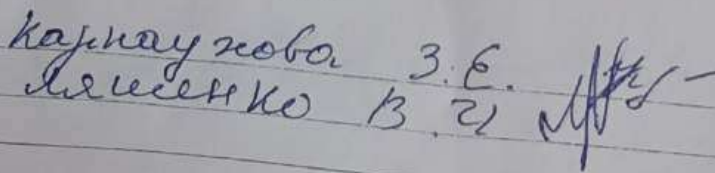 Карнаухова З.Е.
Ляшенко В.И